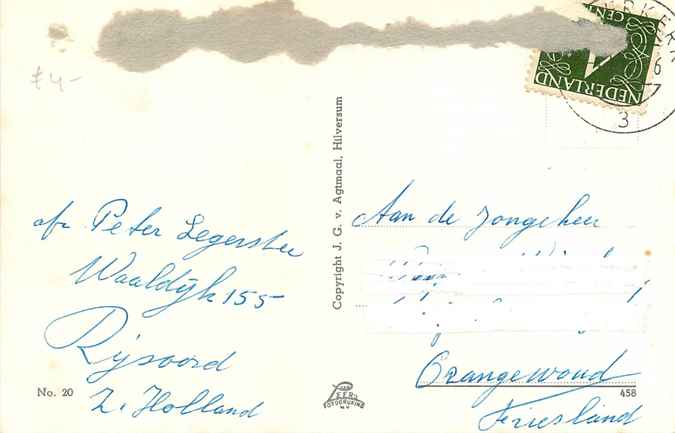 £4-
CEN
NEDERLAND
6
3
Copyright J. G. v. Agtmaal, Hilversum
afz Peter Legerstee
Waaldijk 155
Rijsoord
Z. Holland
Aan de Jongeheer
Orangewoud
Friesland
No. 20
FOTODRUKING
458